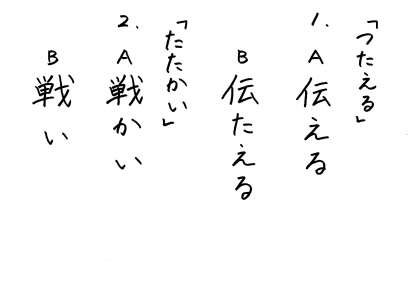 「つたえる」
1. A 伝える
B 伝たえる
「たたかい」
2. A 戦かい
B 戦い